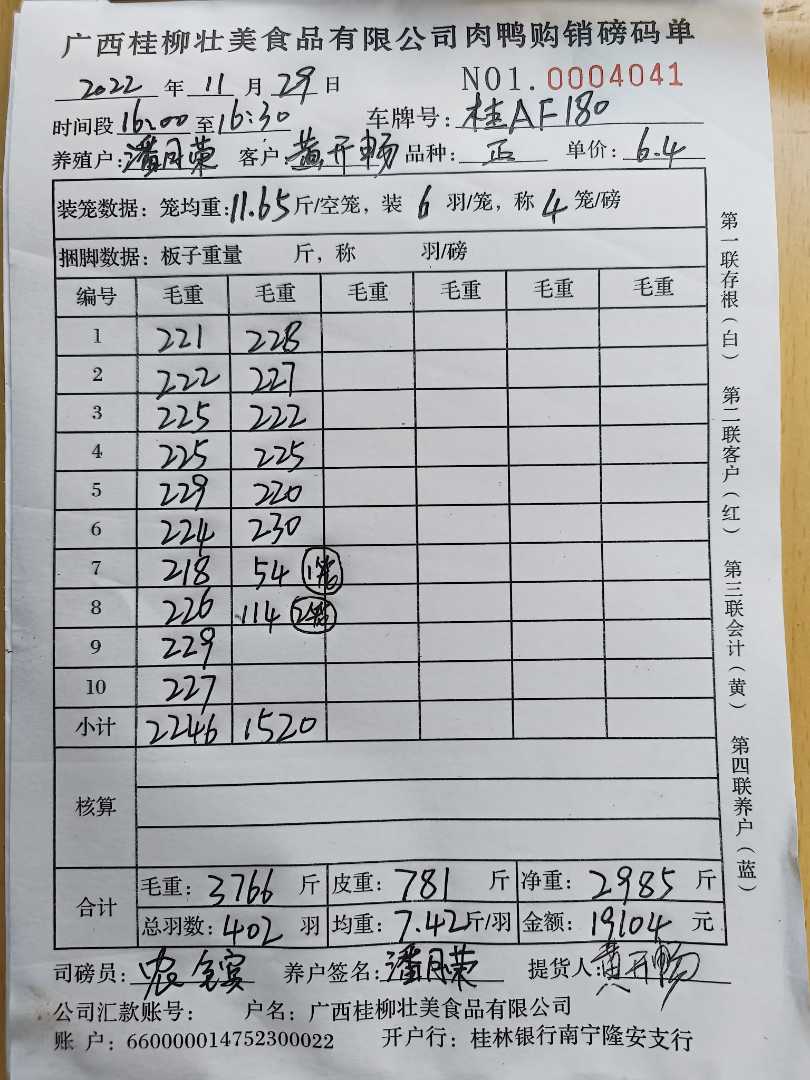 广西桂柳壮美食品有限公司肉鸭购销磅码单
2022 年 11 月 29 日 NO1.0004041
时间段 16:00 至 16:30 车牌号: 桂AF180
养殖户: 潘月荣 客户: 黄开畅 品种: 正 单价: 6.4
装笼数据: 笼均重: 11.65 斤/空笼, 装 6 羽/笼, 称 4 笼/磅
捆脚数据: 板子重量 斤, 称 羽/磅
编号 毛重 毛重 毛重 毛重 毛重 毛重
1 221 228
2 222 227
3 225 222
4 225 225
5 229 220
6 224 230
7 218 54 1笼
8 226 114 2笼
9 229
10 227
小计 2246 1520
核算
合计
毛重: 3766 斤 皮重: 781 斤 净重: 2985 斤
总羽数: 402 羽 均重: 7.42 斤/羽 金额: 19104 元
司磅员: 农 养户签名: 潘月荣 提货人: 黄开畅
公司汇款账号: 户名: 广西桂柳壮美食品有限公司
账 户: 660000014752300022 开户行: 桂林银行南宁隆安支行
第一联存根(白) 第二联客户(红) 第三联会计(黄) 第四联养户(蓝)